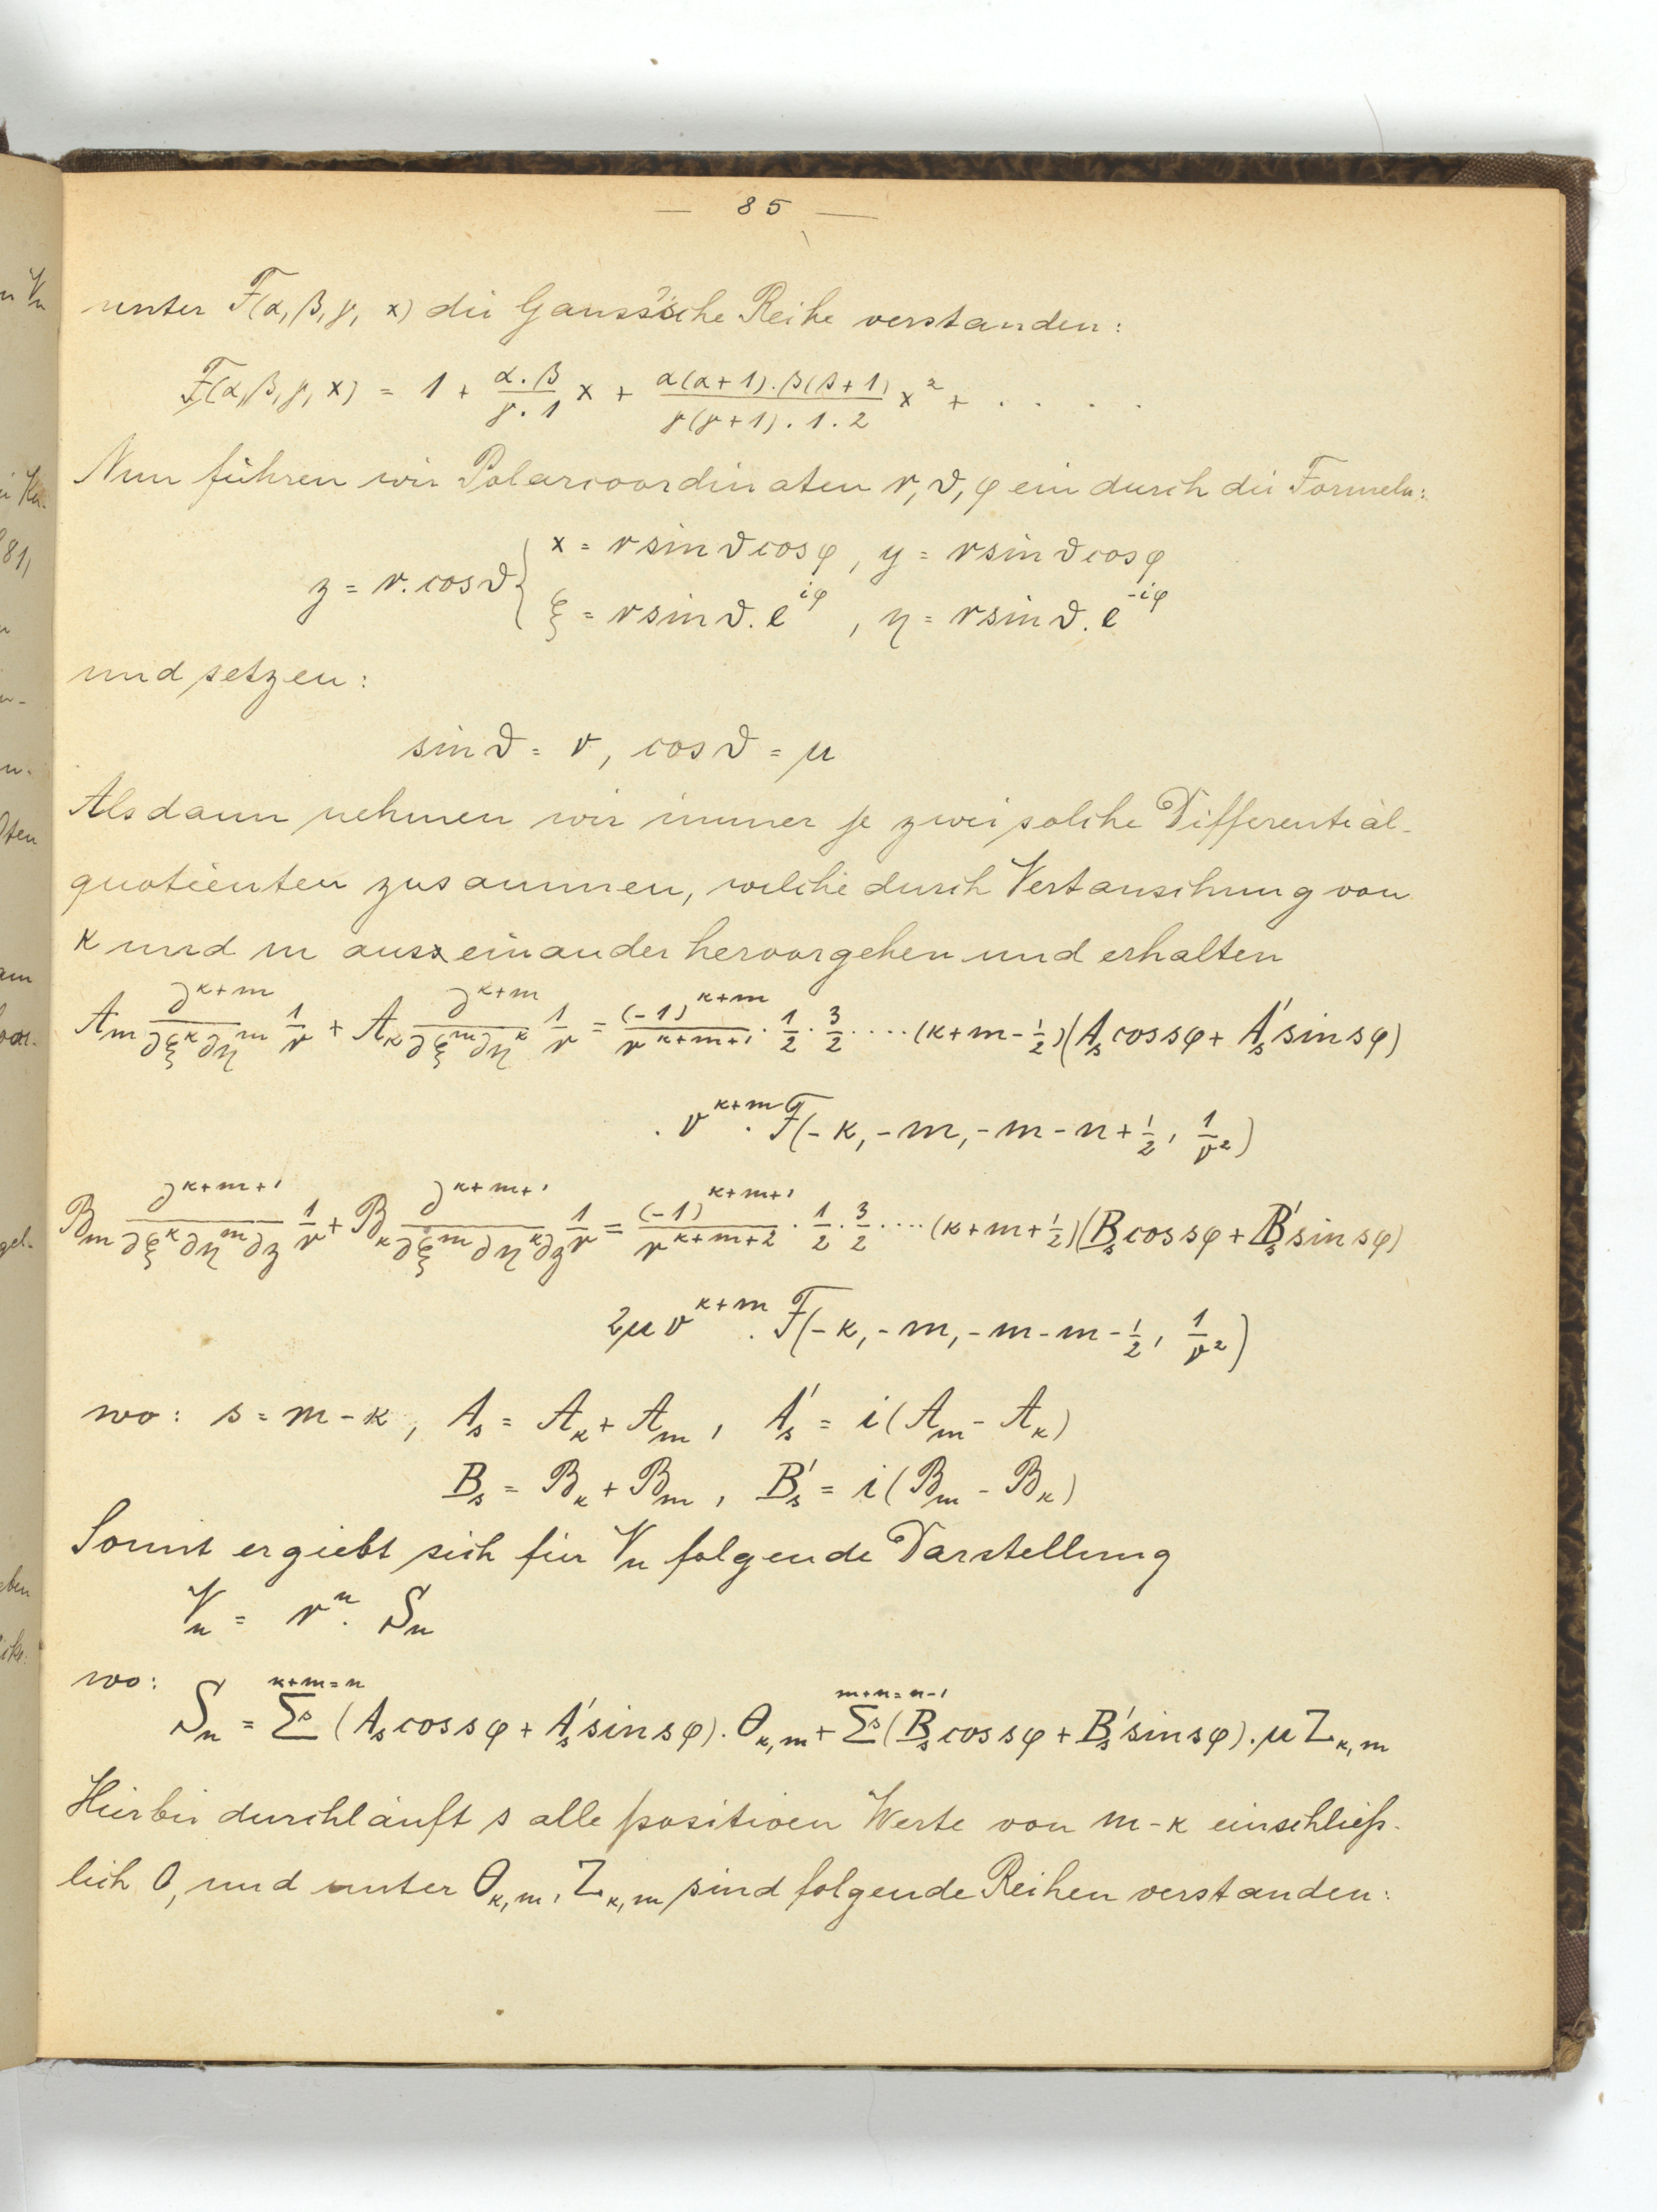 — 85 —
unter F(α, β, γ, x) die Gauss'sche Reihe verstanden:
F(α, β, γ, x) = 1 + \frac{α.β}{γ.1} x + \frac{α(α+1).β(β+1)}{γ(γ+1).1.2} x² + . . . .
Nun führen wir Polarcoordinaten r, ϑ, φ ein durch die Formeln:
x = r sin ϑ cos φ, y = r sin ϑ cos φ
z = r. cos ϑ {
ξ = r sin ϑ. e^{iφ}, η = r sin ϑ. e^{-iφ}
und setzen:
sin ϑ = ν, cos ϑ = μ
Alsdann nehmen wir immer je zwei solche Differential-
quotienten zusammen, welche durch Vertauschung von
κ und m auseinander hervorgehen und erhalten
𝒜_m \frac{∂^{κ+m}}{∂ξ^κ ∂η^m} \frac{1}{r} + 𝒜_κ \frac{∂^{κ+m}}{∂ξ^m ∂η^κ} \frac{1}{r} = \frac{(-1)^{κ+m}}{r^{κ+m+1}} · \frac{1}{2} · \frac{3}{2} ····· (κ+m-\frac{1}{2}) (A_s cos sφ + A'_s sin sφ)
. ν^{κ+m} . F(-κ, -m, -m-n+\frac{1}{2}, \frac{1}{ν²})
ℬ_m \frac{∂^{κ+m+1}}{∂ξ^κ ∂η^m ∂z} \frac{1}{r} + ℬ_κ \frac{∂^{κ+m+1}}{∂ξ^m ∂η^κ ∂z} \frac{1}{r} = \frac{(-1)^{κ+m+1}}{r^{κ+m+2}} · \frac{1}{2} · \frac{3}{2} ····· (κ+m+\frac{1}{2}) (B_s cos sφ + B'_s sin sφ)
2μ ν^{κ+m} . F(-κ, -m, -m-m-\frac{1}{2}, \frac{1}{ν²})
wo: s = m-κ, A_s = 𝒜_κ + 𝒜_m, A'_s = i(𝒜_m - 𝒜_κ)
B_s = ℬ_κ + ℬ_m, B'_s = i(ℬ_m - ℬ_κ)
Somit ergiebt sich für V_n folgende Darstellung
V_n = r^n. S_n
wo:
S_n = \sum_s^{κ+m=n} (A_s cos sφ + A'_s sin sφ). Θ_{κ,m} + \sum_s^{m+n=n-1} (B_s cos sφ + B'_s sin sφ). μ Z_{κ,m}
Hierbei durchläuft s alle positiven Werte von m-κ einschließ-
lich 0, und unter Θ_{κ,m}, Z_{κ,m} sind folgende Reihen verstanden: